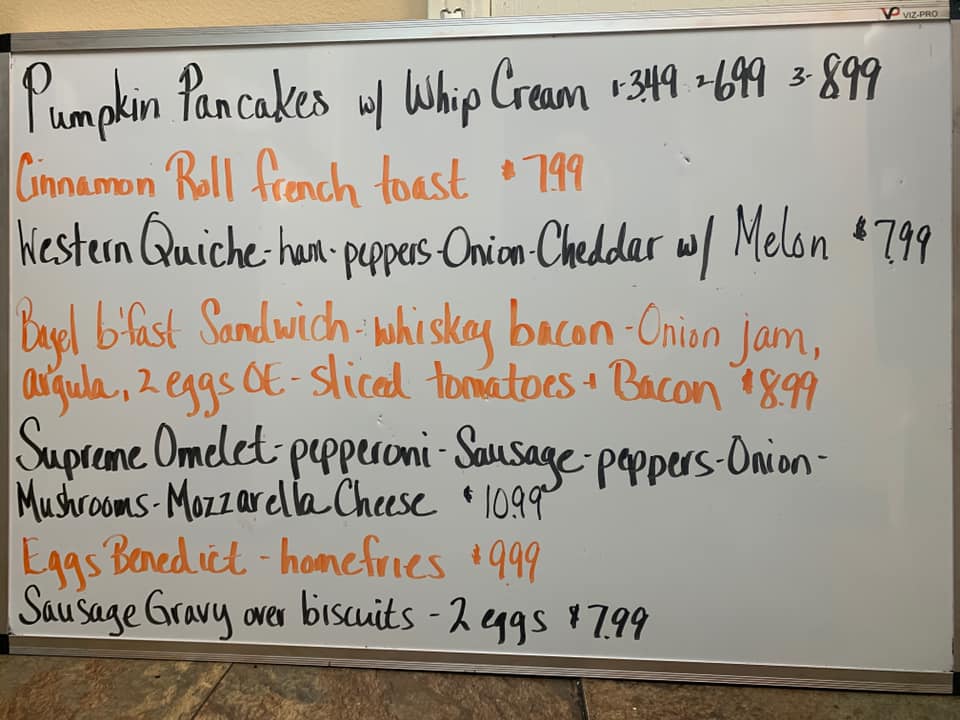 VP VIZ-PRO
Pumpkin Pancakes w/ Whip Cream 1-3.49 2-699 3-899
Cinnamon Roll french toast $7.99
Western Quiche-ham-peppers-Onion-Cheddar w/ Melon $7.99
Bagel b'fast Sandwich-whiskey bacon-Onion jam,
arugula, 2 eggs OE-sliced tomatoes + Bacon $8.99
Supreme Omelet-pepperoni-Sausage-peppers-Onion-
Mushrooms-Mozzarella Cheese $10.99
Eggs Benedict-homefries $999
Sausage Gravy over biscuits-2 eggs $7.99